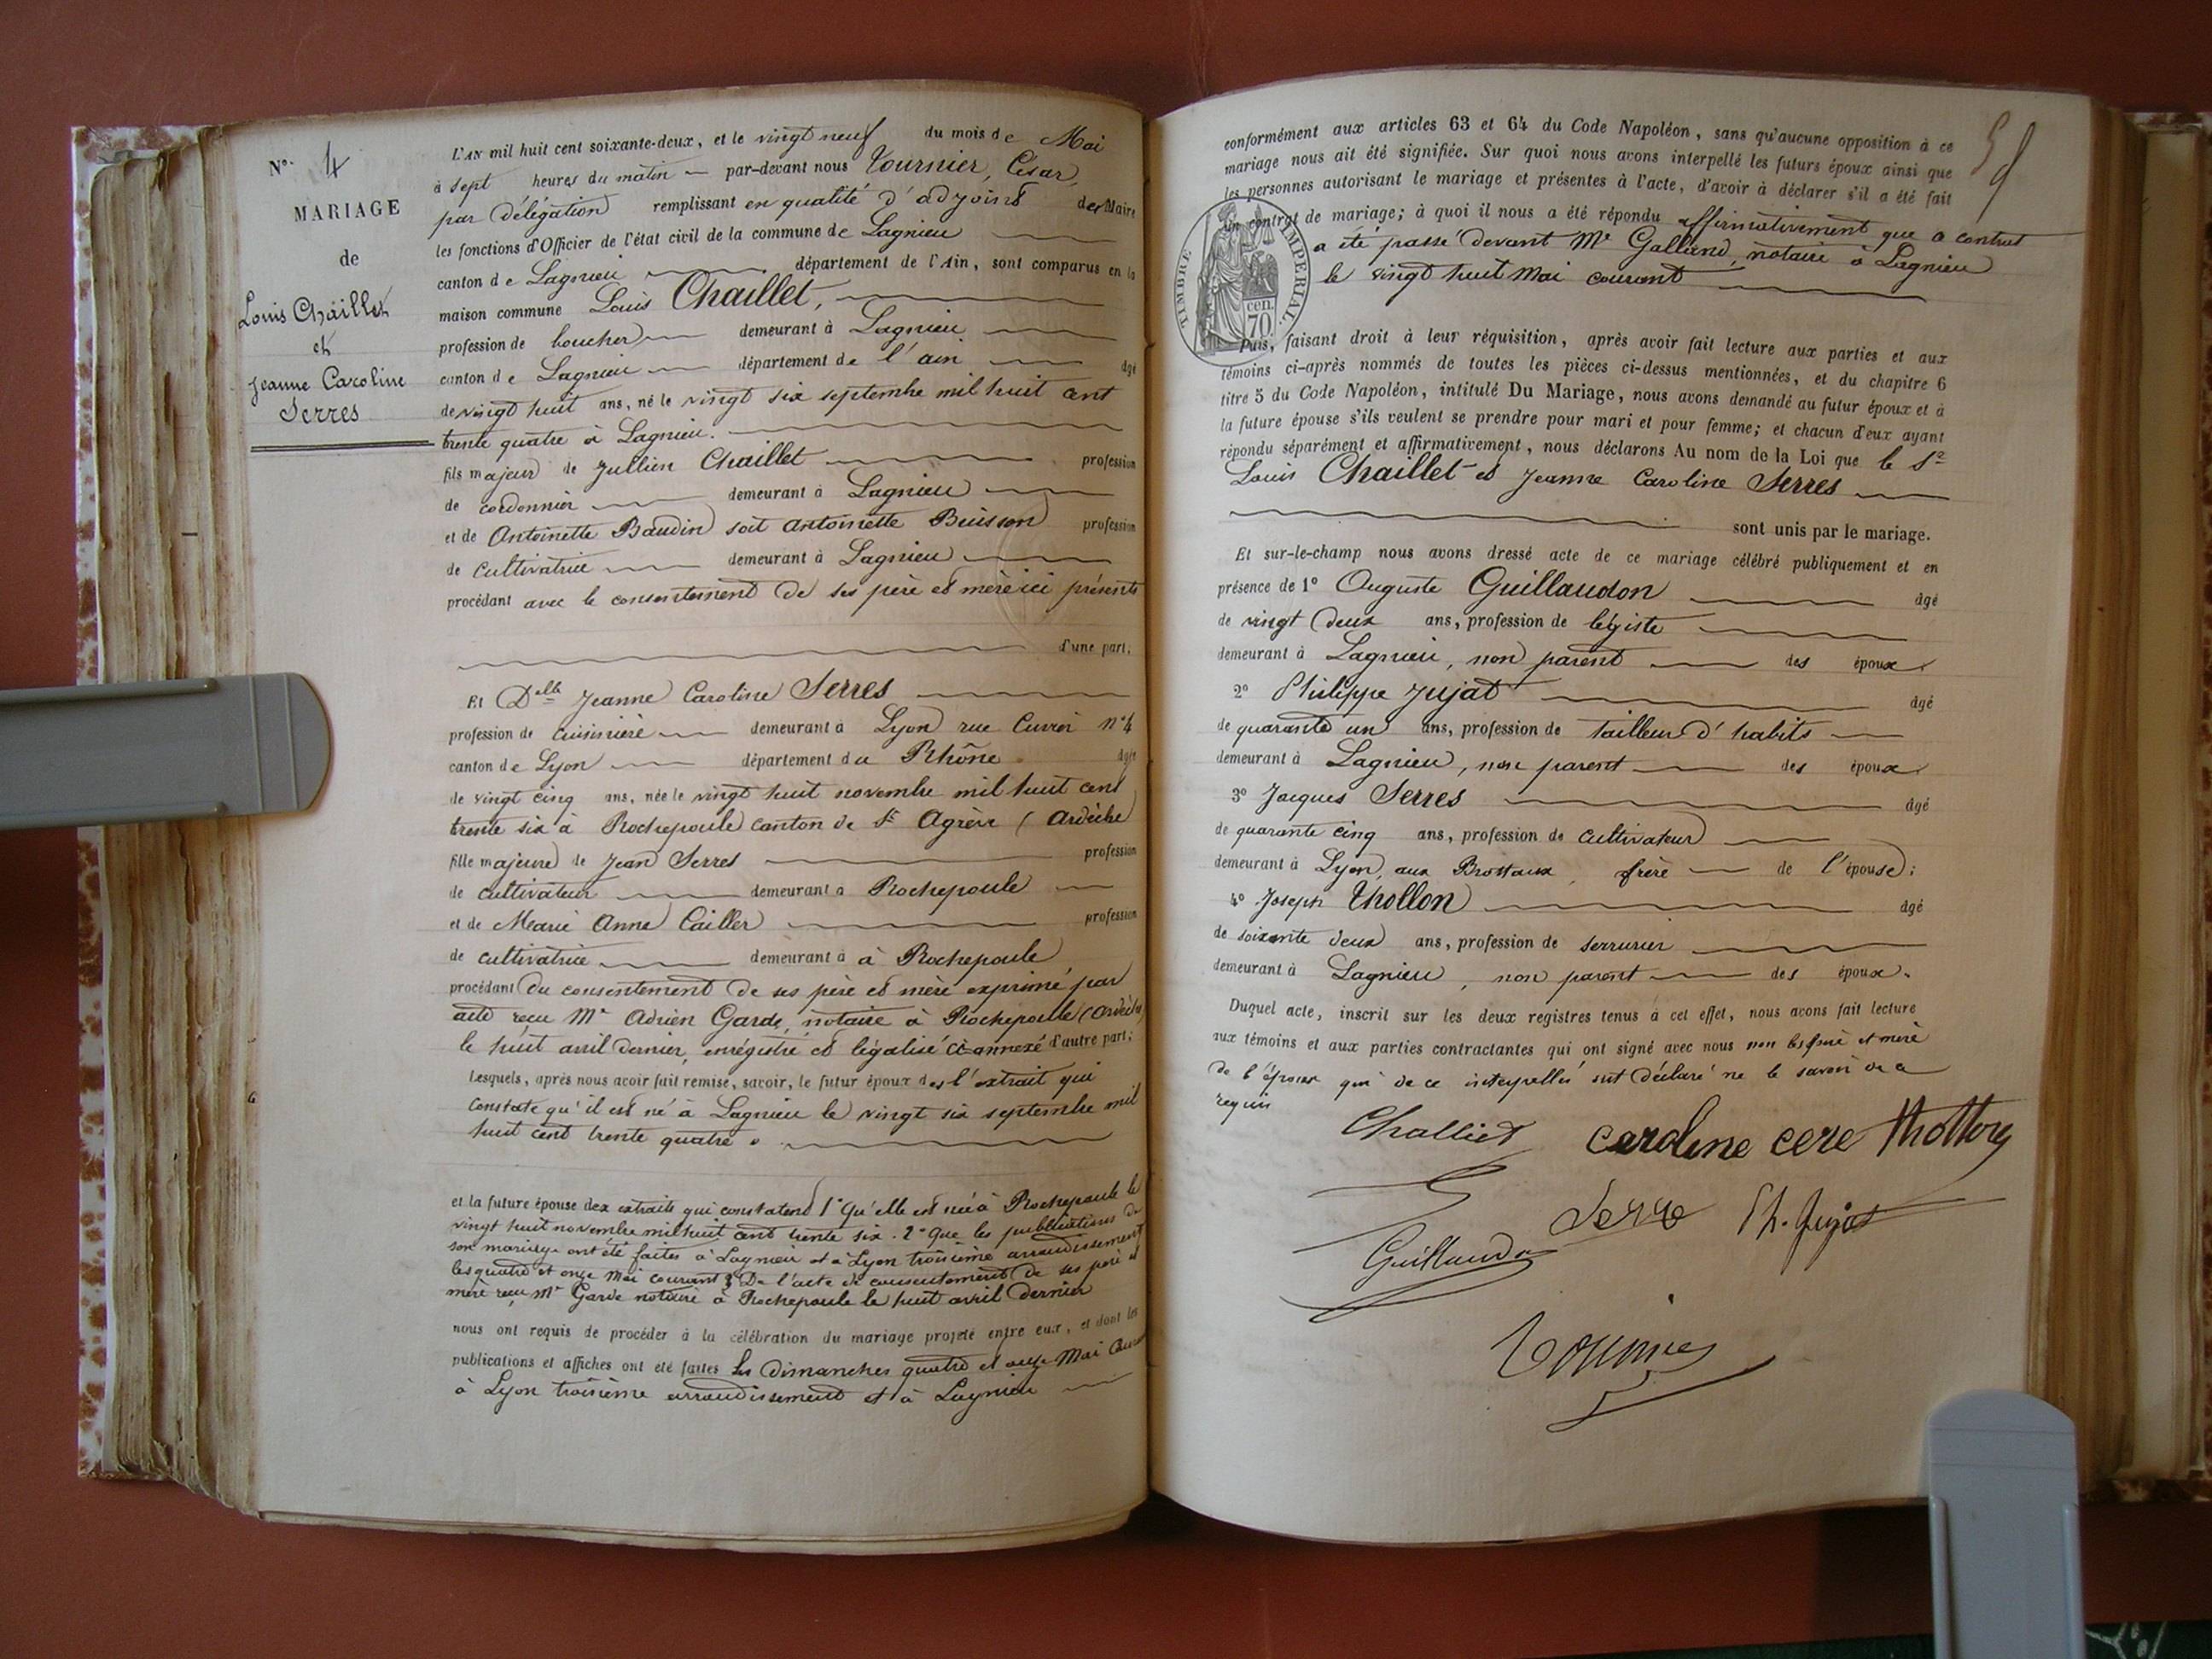 N.o 4
MARIAGE
de
Louis Chaillet
et
Jeanne Caroline
Serres
L'AN mil huit cent soixante-deux, et le vingt neuf du mois de Mai
à sept heures du matin par-devant nous Tournier, César,
par délégation remplissant en qualité d'adjoint de Maire
les fonctions d'Officier de l'état civil de la commune de Lagnieu
canton de Lagnieu département de l'Ain, sont comparus en la
maison commune Louis Chaillet,
profession de boucher demeurant à Lagnieu
canton de Lagnieu département de l'ain âgé
de vingt huit ans, né le vingt six septembre mil huit cent
trente quatre à Lagnieu.
fils majeur de Jullien Chaillet profession
de cordonnier demeurant à Lagnieu
et de Antoinette Baudin soit Antoinette Buisson profession
de cultivatrice demeurant à Lagnieu
procédant avec le consentement de ses père et mère ici présents
d'une part,
Et Delle Jeanne Caroline Serres
profession de cuisinière demeurant à Lyon rue Cuvier n° 4
canton de Lyon département du Rhône âgée
de vingt cinq ans, née le vingt huit novembre mil huit cent
trente six à Rochepaule canton de St Agrève (Ardèche
fille majeure de Jean Serres profession
de cultivateur demeurant à Rochepaule
et de Marie Anne Cailler profession
de cultivatrice demeurant à à Rochepaule
procédant du consentement de ses père et mère exprimé par
acte reçu Me Adrien Garde, notaire à Rochepaule (Ardèche)
le huit avril dernier, enrégistré et légalisé ci-annexé d'autre part;
Lesquels, après nous avoir fait remise, savoir, le futur époux de l'extrait qui
constate qu'il est né à Lagnieu le vingt six septembre mil
huit cent trente quatre.
et la future épouse des extraits qui constatent 1° Qu'elle est née à Rochepaule le
vingt huit novembre mil huit cent trente six. 2° Que les publications de
son mariage ont été faites à Lagnieu et à Lyon troisième arrondissement
les quatre et onze Mai courant 3 De l'acte de consentement de ses père et
mère reçu Me Garde notaire à Rochepaule le huit avril dernier
nous ont requis de procéder à la célébration du mariage projeté entre eux, et dont les
publications et affiches ont été faites les Dimanches quatre et onze Mai courant
à Lyon troisième arrondissement et à Lagnieu
conformément aux articles 63 et 64 du Code Napoléon, sans qu'aucune opposition à ce
mariage nous ait été signifiée. Sur quoi nous avons interpellé les futurs époux ainsi que
les personnes autorisant le mariage et présentes à l'acte, d'avoir à déclarer s'il a été fait
un contrat de mariage; à quoi il nous a été répondu affirmativement que a contrat
a été passé devant Me Galland, notaire à Lagnieu
le vingt huit Mai courant
TIMBRE IMPERIAL.
70 cen.
Puis, faisant droit à leur réquisition, après avoir fait lecture aux parties et aux
témoins ci-après nommés de toutes les pièces ci-dessus mentionnées, et du chapitre 6
titre 5 du Code Napoléon, intitulé Du Mariage, nous avons demandé au futur époux et à
la future épouse s'ils veulent se prendre pour mari et pour femme; et chacun d'eux ayant
répondu séparément et affirmativement, nous déclarons Au nom de la Loi que le Sr
Louis Chaillet et Jeanne Caroline Serres
sont unis par le mariage.
Et sur-le-champ nous avons dressé acte de ce mariage célébré publiquement et en
présence de 1° Auguste Guillaudon âgé
de vingt deux ans, profession de légiste
demeurant à Lagnieu, non parent des époux.
2° Philippe Jujat âgé
de quarante un ans, profession de tailleur d'habits
demeurant à Lagnieu, non parent des époux.
3° Jacques Serres âgé
de quarante cinq ans, profession de cultivateur
demeurant à Lyon, aux Brottaux, frère de l'épouse;
4° Joseph Thollon âgé
de soixante deux ans, profession de serrurier
demeurant à Lagnieu, non parent des époux.
Duquel acte, inscrit sur les deux registres tenus à cet effet, nous avons fait lecture
aux témoins et aux parties contractantes qui ont signé avec nous non les père et mère
de l'époux qui de ce interpellés ont déclaré ne le savoir de ce
requis
Challiet caroline cere thollon
Serre Ph. Jujat
Guillaudon
Tournier